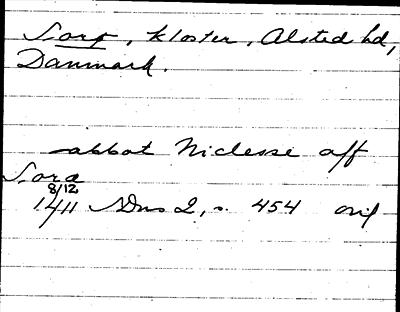 Sorø, kloster, Alsted hd,
Danmark.
abbot Niclesse aff
Sora
8/12
1411 SDns 2, s. 454 orig